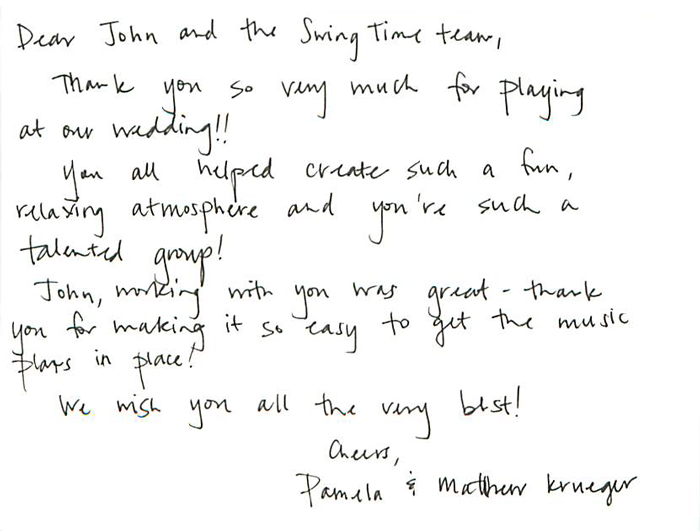 Dear John and the Swing Time team,
Thank you so very much for playing
at our wedding!!
You all helped create such a fun,
relaxing atmosphere and you're such a
talented group!
John, working with you was great - thank
you for making it so easy to get the music
plans in place!
We wish you all the very best!
Cheers,
Pamela & Matthew Krueger